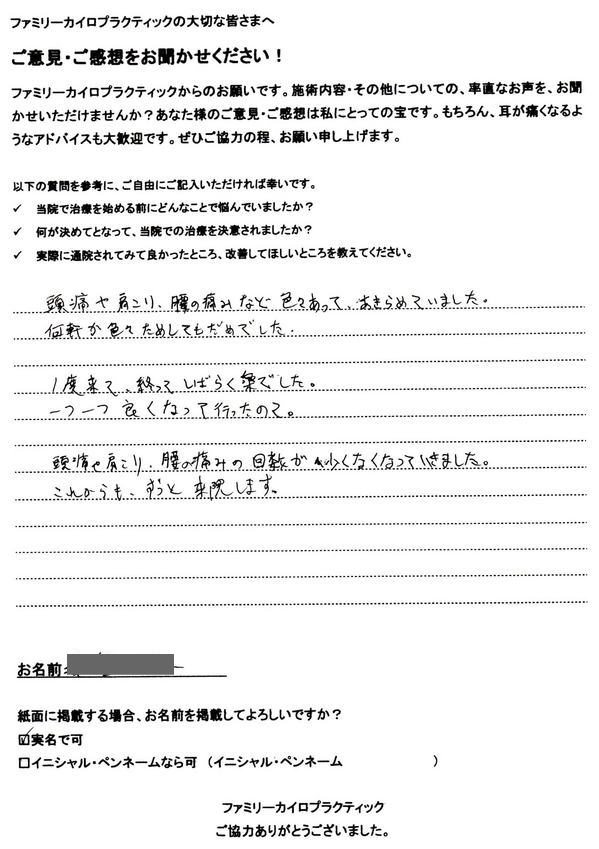 ファミリーカイロプラクティックの大切な皆さまへ
ご意見・ご感想をお聞かせください！
ファミリーカイロプラクティックからのお願いです。施術内容・その他についての、率直なお声を、お聞
かせいただけませんか？あなた様のご意見・ご感想は私にとっての宝です。もちろん、耳が痛くなるよ
うなアドバイスも大歓迎です。ぜひご協力の程、お願い申し上げます。
以下の質問を参考に、ご自由にご記入いただければ幸いです。
✓ 当院で治療を始める前にどんなことで悩んでいましたか？
✓ 何が決めてとなって、当院での治療を決意されましたか？
✓ 実際に通院されてみて良かったところ、改善してほしいところを教えてください。
頭痛や肩こり、腰の痛みなど色々あって、あきらめていました。
何軒か色々ためしてもだめでした.
1度来て、終ってしばらく楽でした。
一つ一つ良くなって行ったので。
頭痛や肩こり、腰の痛みの回数が少くなくなっていきました。
これからも、ずっと来院します。
お名前
紙面に掲載する場合、お名前を掲載してよろしいですか？
☑実名で可
□イニシャル・ペンネームなら可 （イニシャル・ペンネーム ）
ファミリーカイロプラクティック
ご協力ありがとうございました。